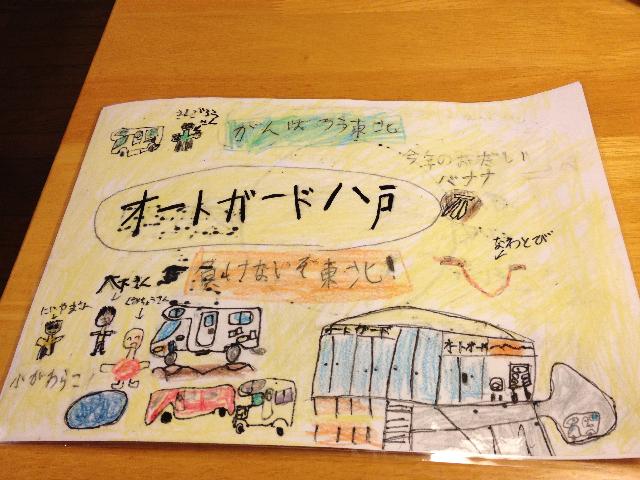 がんばろう東北
今年のおだい
バナナ
オートガード八戸
なわとび
負けないぞ東北!
木下さん
にいやまさん
小がわらこ
オートガード